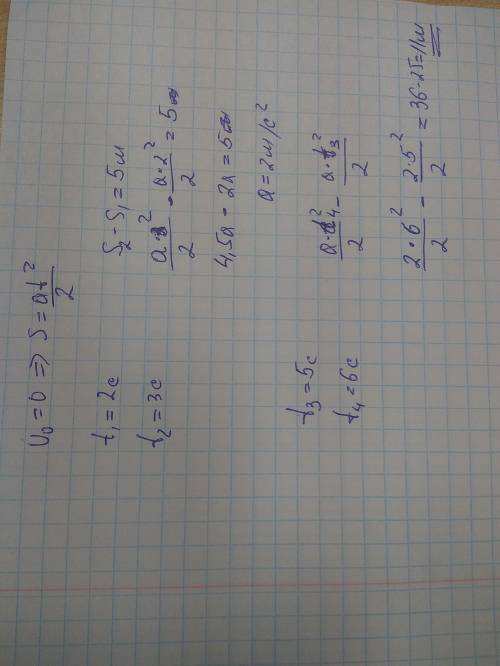 υ₀ = 0 ⇒ S = at²/2
t₁ = 2c
t₂ = 3c
S₂ - S₁ = 5м
a·3²/2 - a·2²/2 = 5м
4,5a - 2a = 5м
a = 2м/c²
t₃ = 5c
t₄ = 6c
a·t₄²/2 - a·t₃²/2
2·6²/2 - 2·5²/2 = 36-25=11м